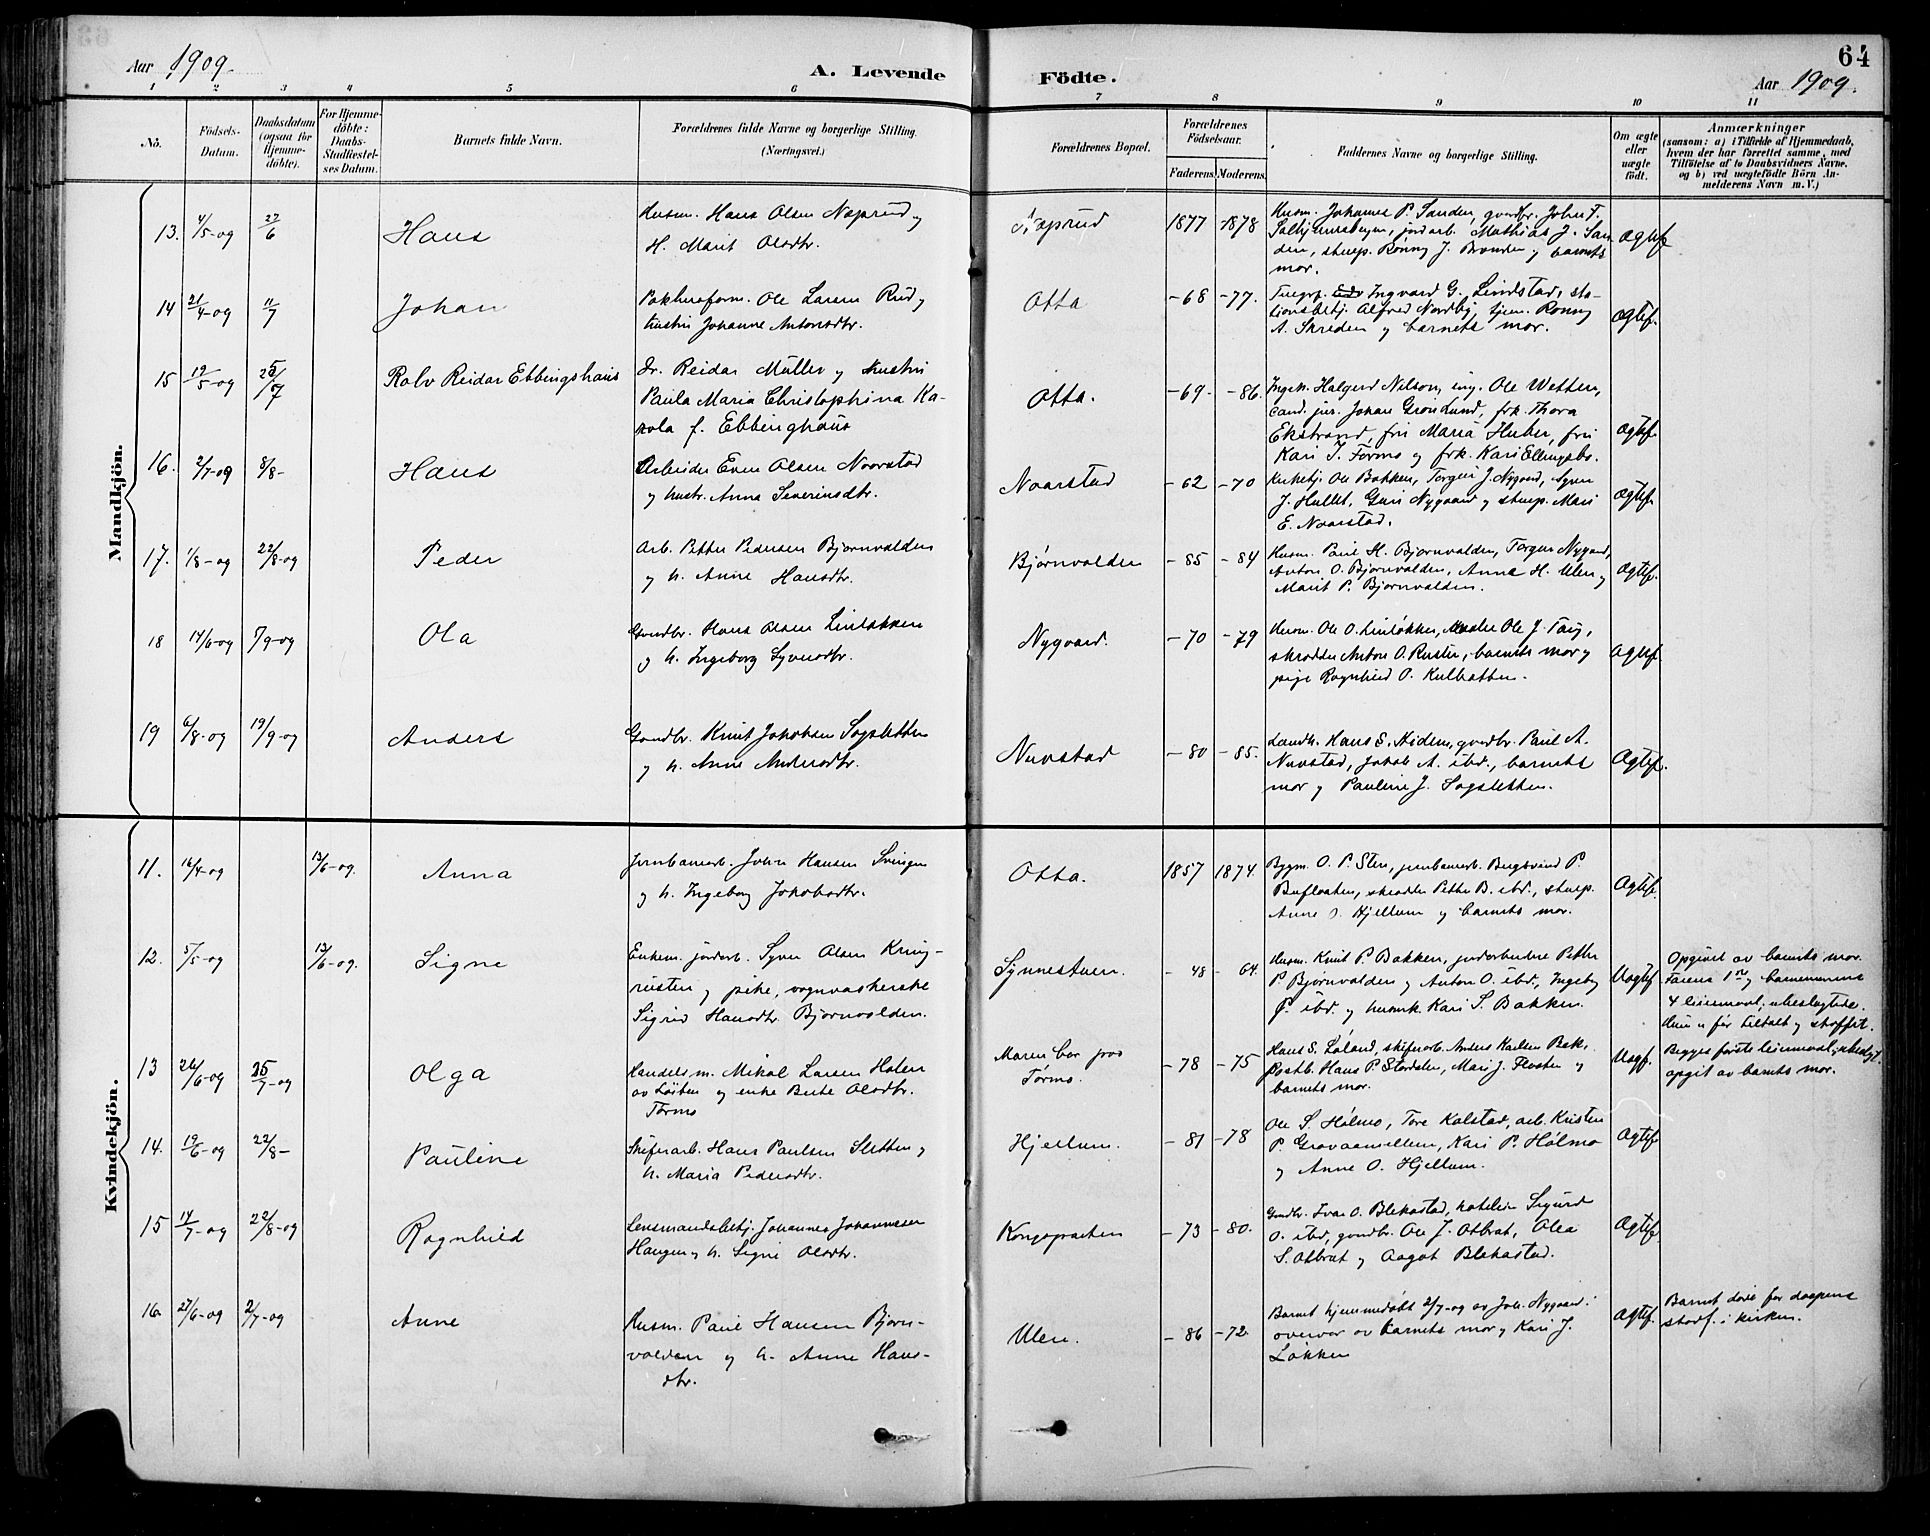 Aar 1909.
A. Levende
Födte.
64
Aar 1909.
1 2 3 4 5 6 7 8 9 10 11
No.
Födsels-
Datum.
Daabsdatum
(ogsaa for
Hjemme-
döbte).
For Hjemme-
döbte:
Daabs-
Stadfæstel-
ses Datum.
Barnets fulde Navn.
Forældrenes fulde Navne og borgerlige Stilling.
(Næringsvei.)
Forældrenes Bopæl.
Forældrenes
Födselsaar.
Faderens.
Moderens.
Faddernes Navne og borgerlige Stilling.
Om ægte
eller
uægte
födt.
Anmærkninger
(saasom: a) i Tilfælde af Hjemmedaab,
hvem der har forrettet samme, med
Tilföielse af to Daabsvidners Navne,
og b) ved uægtefödte Börn An-
melderens Navn m. V.)
Mandkjön.
13. 4/5-09 27/6 Hans
Husm. Hans Olsen Næprud og
H. Marit Olsdtr.
Næprud 1877 -1878
Husm. Johannes P. Sanden, gvardbr. John F.
jordarb. Mathias J. San-
den, stuep. Rønnø J. Branden og barnets
mor.
Ægtef.
14 21/4-09 11/7 Johan
Pakhusform. Ole Larsen Rud og
hustru Johanne Antonsdtr.
Otta -68 -77.
Telegrf. Ingvard G. Lindstad, sta-
tionsbetj. Alfred Nordby, tjen. Ronnø
A. Skreden og barnets mor.
Ægtef.
15 19/5-09 25/7 Rolv Reidar Ebbingshaus
Dr. Reidar Müller og hustru
Paula Maria Christophina Ka-
rola f. Ebbinghaus
Otta. -69- -86.
Ingek. Halgerd Nilson, ing. Ole Wetten,
cand. jur. Johan Grønlund, frk. Thora
Ekstrand, fru Maria Huber, fru
Kari T. Formo og frk. Kari Ellingsbø.
Ægtef.
16. 2/7-09 8/8- Hans
Arbeider Even Olsen Noorstad
og hustr. Anna Severinsdtr.
Noorstad -62 -70
Kirketj. Ole Bakken, Torger J. Nygaard, Syver
J. Hullet, Guri Nygaard og stuep. Mari
E. Noorstad.
Ægtef.
17. 1/8-09 22/8-09 Peder
Arb. Petter Pedersen Bjørnvolden
og h. Anne Hansdtr.
Bjørnvolden -85 -84
Husm. Paul H. Bjørnvolden, Torger Nygard,
Anton O. Bjørnvolden, Anna H. Ulen og
Marit P. Bjørnvolden.
Ægtef.
18 14/6-09 7/9-09 Ola
Gaardbr. Hans Olsen Linløkken
og h. Ingeborg Syversdtr.
Nygaard. -70 -79
Husm. Ole O. Linløkken, Maler Ole J.
skrædder Anton O. Ruster, barnets mor og
pige Ragnhild O. Kulbotten.
Ægtef.
19 6/8-09 19/9-09 Anders
Gaardbr. Knut Jakobsen Sagsletten
og h. Anne Andersdtr.
Nuvstad -80 -85.
Landh. Hans S. gvardbr. Paul A.
Nuvstad, Jakob A. ibd., barnets
mor og Pauline J. Sagsletten.
Ægtef.
Kvindekjön.
11. 16/4-09 13/6-09. Anna
Jernbanearb. John Hansen Svingen
og h. Ingeborg Jakobsdtr.
Otta. 1857 1874.
Bygm. O. P. Sten, jernbanearb. Bergsvend P.
Bufloaten, skrædder Petter B. ibd., stuep.
Anne O. Hjellum og barnets mor.
Ægtef.
12. 5/5-09 13/6-09. Signe
Enkem. jorderb. Syver Olsen Kring-
rusten og pike, vognvaskerske
Sigrid Hansdtr. Bjørnvolden.
Synnestuen. -48 -64.
Husm. Knut P. Bakken, jorderbeidere Petter
P. Bjørnvolden og Anton O. ibd., Ingebg
P. ibd. og husmk. Kari S. Bakken.
Uægtef.
Opgivet av barnets mor.
Farens 1ste og barnemorens
4 leiermaal; ubeslegtede.
Hun er før tiltalt og straffet.
13 26/6-09 25/7-09 Olga
Handelsm. Mikal Larsen Holen
av Løiten og enke Berte Olsdtr.
Formo
Moren bor paa
Formo. -78 -75
Hans S. Løland, skiferarb. Anders Karlsen Bek,
postb. Hans P. Stordalen, Mari J. Flaaten og
barnets mor.
Uægf.
Begges første leiermaal; ubeslgt.
opgit av barnets mor.
14. 19/6-09 22/8- Pauline
Skiferarb. Hans Paulsen Sletten og
h. Maria Pedersdtr.
Hjellum. -81 -78
Ole S. Hølmo, Tore Kolstad, arb. Kristen
P. Gravaamellem, Kari P. Hølmo
og Anne O. Hjellum.
Ægtef.
15 14/7-09 22/8-09 Ragnhild
Lensmandsbetj. Johannes Johannesen
Haugen og h. Signe Olsdtr.
Kongsparten -73 -80.
Gaardbr. Ivar O. Blekastad, hotelier Sigurd
O. ibd, gaardbr. Ole J. Olbrot, Olea
S. Olbrot og Aagot Blekastad.
Ægtef.
16. 27/6-09 2/7-09 Anne
Husm. Paul Hansen Bjørn-
volden og h. Anne Hans-
dtr.
Ulen. -86 -72.
Barnet hjemmedøbt 2/7-09 av Joh. Nygaard i
overvær av barnets mor og Kari J.
Løkken
Ægtef.
Barnet døde før daapens
stadf. i kirken.